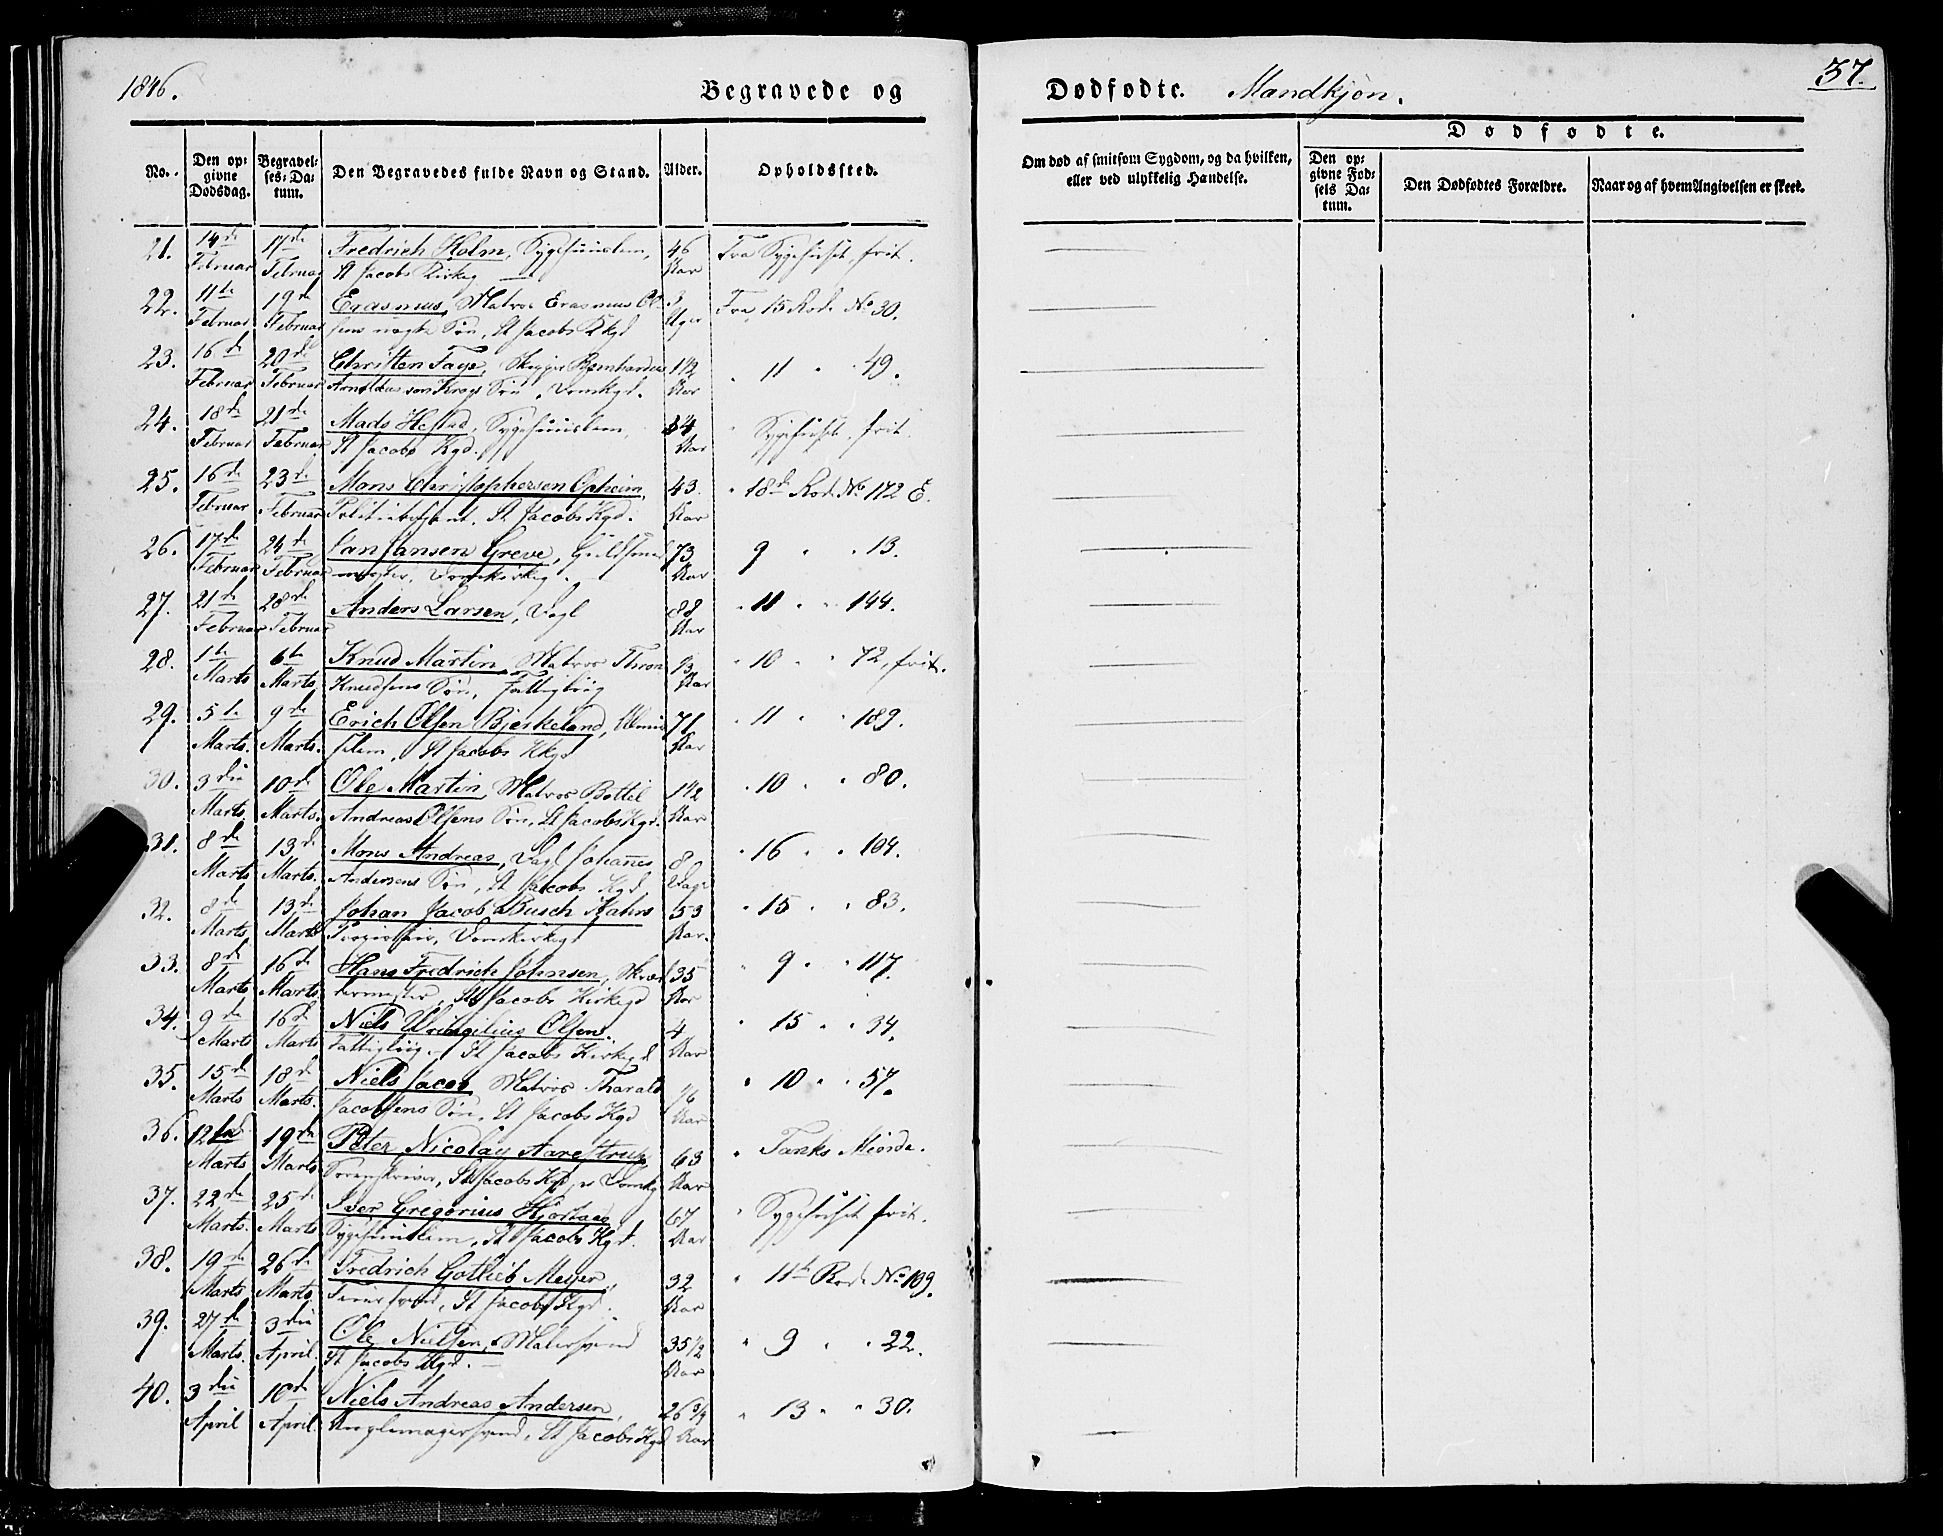 1846.
Begravede og Dødfødte. Mandkjøn.
37.
No.
Den opgivne Dødsdag.
Begravelses-Datum.
Den Begravedes fulde Navn og Stand.
Alder.
Opholdssted.
Om død af smitsom Sygdom, og da hvilken, eller ved ulykkelig Hændelse.
Dødfødte.
Den opgivne Fødsels Datum.
Den Dødfødtes Forældre.
Naar og af hvem Angivelsen er skeet.
21. 14de 17de Fredrich Holm, Sygehuuslem, 46 Fra Sygehuset, frit.
Februar Februar St Jacobs Kirkeg Aar
22. 11te 19de Erasmus, Matros Erasmus Ol- 3 Fra 15 Rode No 30.
Februar Februar sens ægte Søn, St Jacobs Kkgd Uger
23. 16de 20de Christen Faye, Skipper Bernhardus 1 1/2 " 11 " " 49.
Februar Februar Krogs Søn, Domkgd. Aar
24. 18de 21de Mads Hestad, Sygehuuslem, 54 " Sygehuset, frit.
Februar Februar St Jacobs Kgd. Aar
25. 16de 23de Mons Christophersen Opheim, 43. " 18de Rode No 172 E.
Februar Februar Politiebetjent, St Jacobs Kgd. Aar
26. 17de 24de Jan Jansen Greve, Guldsmed- 73 9 " " 13.
Februar Februar mester, Domkirkeg. Aar
27. 21de 28de Anders Larsen, Dagl 88 " 11 " " 144.
Februar Februar Aar
28. 1te 6te Knud Martin, Matros Thron " 10 " " 72, frit.
Marts Marts Knudsens Søn, Fattigliig Aar
29. 5te 9de Erich Olsen Bjerkeland, Almis- 71 " 11 " " 189.
Marts. Marts. selem, St Jacobs Kkgd Aar
30. 3die 10de Ole Martin, Matros Bottel 1 1/2 " 10 " " 80.
Marts Marts. Andreas Olsens Søn, St Jacobs Kgd. Aar
31. 8de 13de Mons Andreas, Dagl Johannes 8 " 16 " " 104.
Marts Marts. Andersens Søn, St Jacobs Kgd. Dage
32. 8de 13de Johan Jacob Busch Kahrs 53 " 15 " " 83.
Marts Marts Domkirkegd Aar.
33. 8de 16de Hans Fredrich Johnsen, Skræd- 35 " 9 " " 117.
Marts Marts dermester, St Jacobs Kirkegd Aar
34. 9de 16de Niels Olsen. 4 " 15 " " 34.
Marts Marts Fattigliig. St Jacobs Kirkegd Aar
35. 15de 18de Niels Jacob, Matros Tharald " 10 " " 57.
Marts Marts. Jacobsens Søn, St Jacobs Kgd Aar
36. 12te 19de Peter Nicolay Aarestrup 63 " Tanks Minde.
Marts Marts Sorenskriver, St Jacobs Kgd, Aar
37. 22de 25de Iver Gregorius Hjortaas 67 " Sygehuset frit.
Marts. Marts Sygehuuslem, St Jacobs Kgd. Aar
38. 19de 26de Fredrich Gotlieb Meyer, 32 " 11te Rode No 109.
Marts Marts. St Jacobs Kgd. Aar
39. 27de 3die Ole Nielsen, Malersvend 35 1/2 " 9 " " 22.
Marts. April. St Jacobs Kgd. Aar
40. 3die 10de Niels Andreas Andersen, 26 3/4 " 13 " " 30.
April April. St Jacobs Kgd Aar